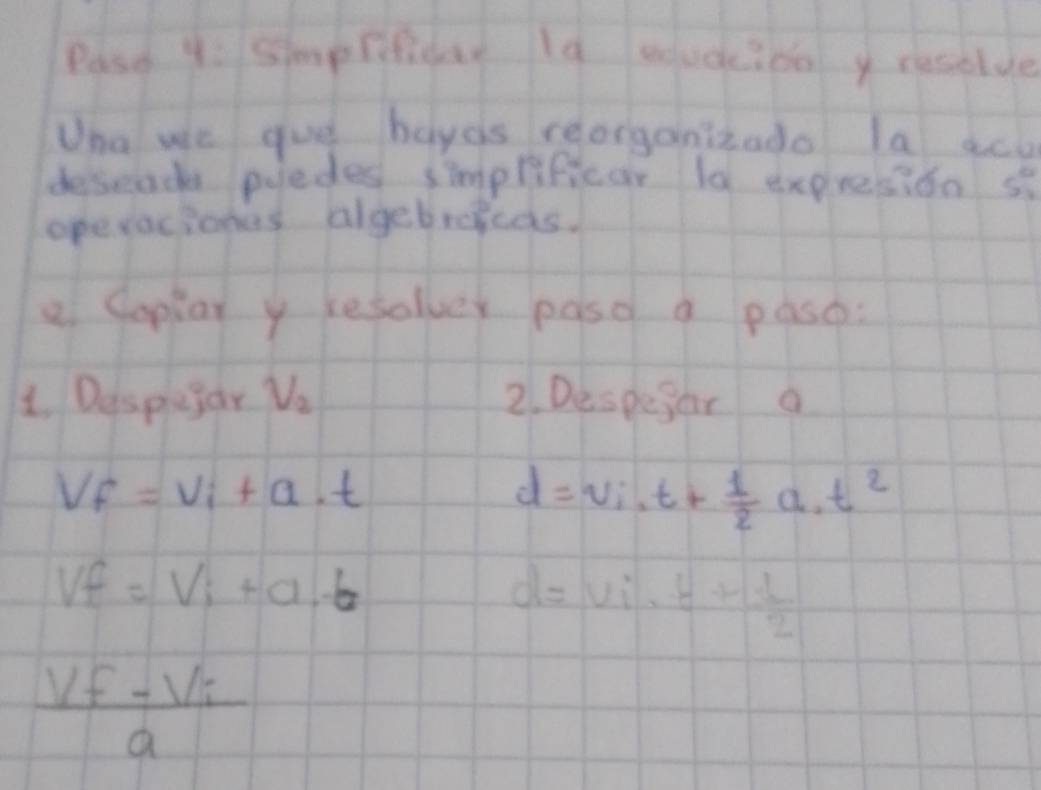 Paso 4: Simplificar la ecuación y resolve
Una vec que hayas reorganizado la ecu
deseada puedes simprificar la expresión si
operaciones algebraicas.
e Copiar y resolver paso a paso:
1. Despejar V₂ 2. Despejar a
Vf = Vi + a . t d = vi . t + 1/2 a . t²
Vf = Vi + a . t d = vi . t + 1/2
Vf - Vi
a